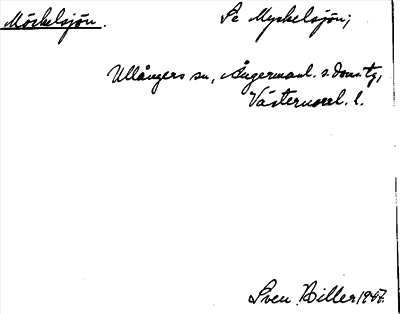 Möckelsjön. Se Myckelsjön;
Ullångers sn, Ångermanl. s. domstg,
Västernorrl. l.
Sven Biller 1947.